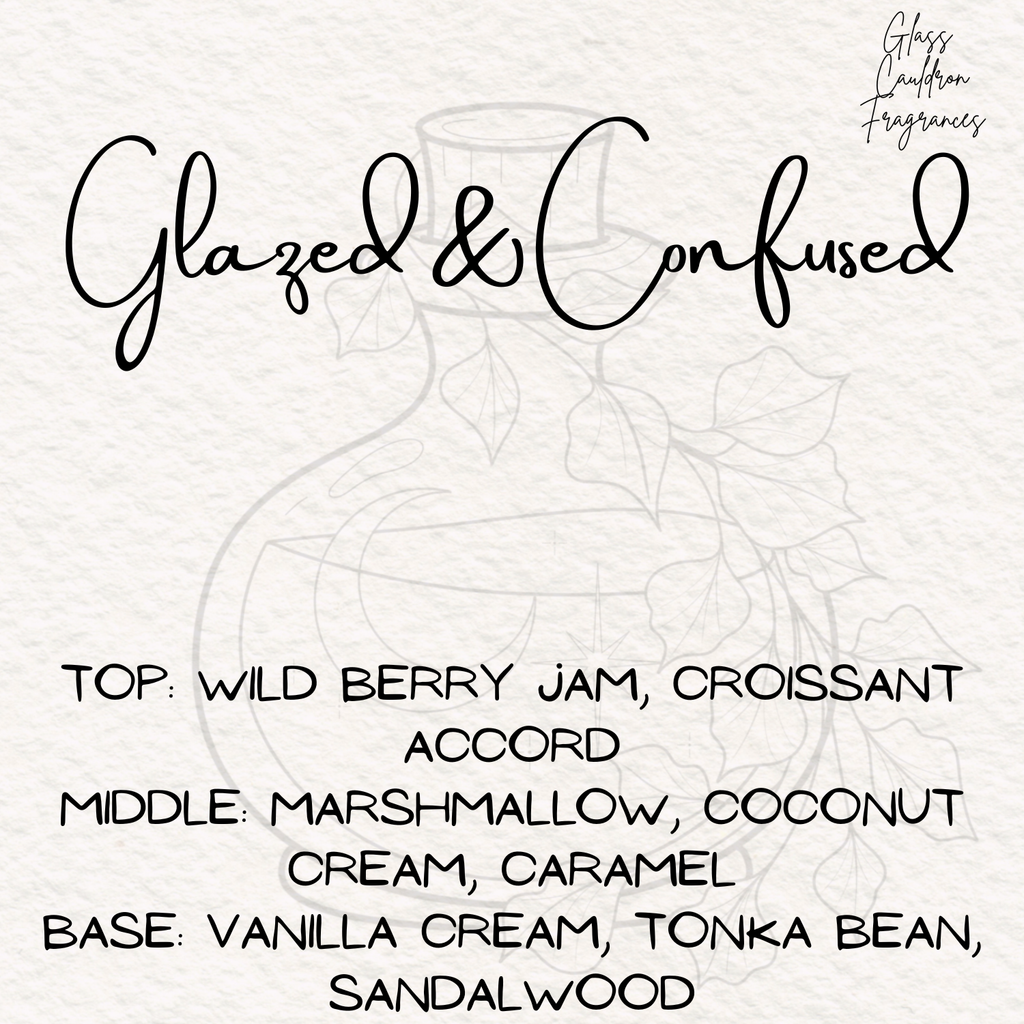 Glass
Cauldron
Fragrances
Glazed & Confused
TOP: WILD BERRY JAM, CROISSANT
ACCORD
MIDDLE: MARSHMALLOW, COCONUT
CREAM, CARAMEL
BASE: VANILLA CREAM, TONKA BEAN,
SANDALWOOD